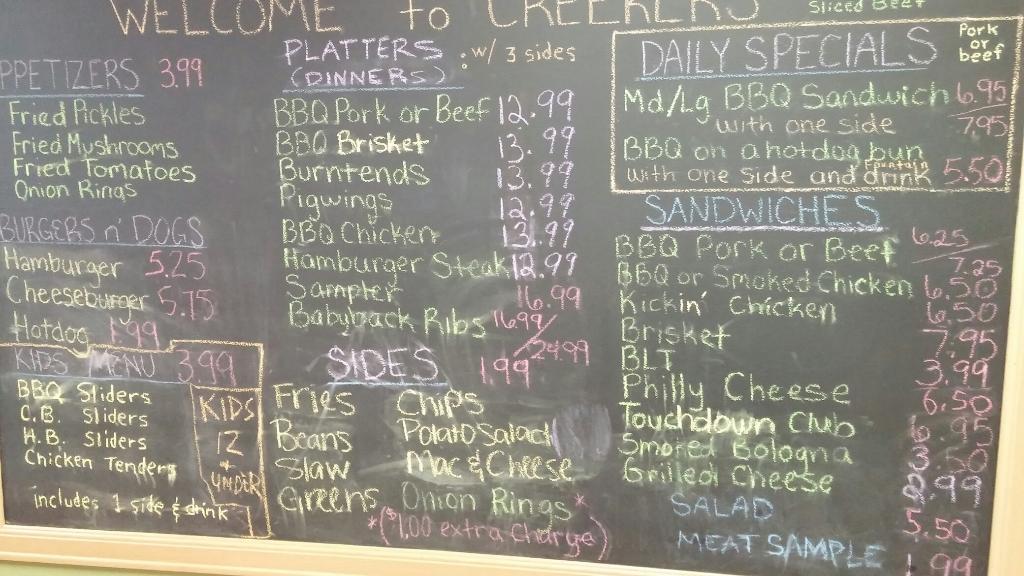 WELCOME to CREEKERS
Sliced Beef
PPETIZERS 3.99
Fried Pickles
Fried Mushrooms
Fried Tomatoes
Onion Rings
BURGERS n' DOGS
Hamburger 5.25
Cheeseburger 5.75
Hotdog 1.99
KIDS MENU 3.99
BBQ Sliders
C.B. Sliders
H.B. Sliders
Chicken Tenders
includes 1 side & drink
KIDS
12
+
UNDER
PLATTERS : w/ 3 sides
(DINNERS)
BBQ Pork or Beef 12.99
BBQ Brisket 13.99
Burntends 13.99
Pigwings 12.99
BBQ Chicken 13.99
Hamburger Steak 12.99
Sampler 16.99
Babyback Ribs 16.99/24.99
SIDES 1.99
Fries Chips
Beans Potato Salad
Slaw Mac & Cheese
Greens Onion Rings*
*($1.00 extra charge)
DAILY SPECIALS
Pork
or
beef
Md/Lg BBQ Sandwich 6.95
with one side 7.95
BBQ on a hotdog bun
with one side and fountain drink 5.50
SANDWICHES
BBQ Pork or Beef 6.25/7.25
BBQ or Smoked Chicken 6.50
Kickin' Chicken 6.50
Brisket 7.95
BLT 3.99
Philly Cheese 6.50
Touchdown Club 6.95
Smoked Bologna 3.50
Grilled Cheese 2.99
SALAD 5.50
MEAT SAMPLE 1.99